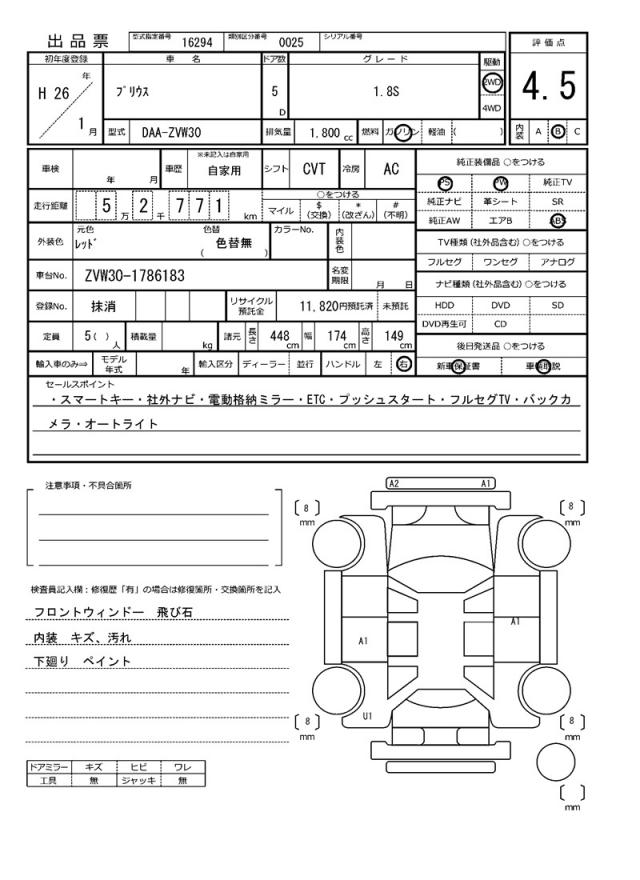 出品票 型式指定番号 16294 類別区分番号 0025 シリアル番号
評価点
4.5
内装 A B C
初年度登録 車名 ドア数 グレード 駆動
H 26 年 1 月
ﾌﾟﾘｳｽ 5 D 1.8S 2WD
4WD
型式 DAA-ZVW30 排気量 1.800 cc 燃料 ガソリン 軽油 ( )
車検 年 月 車歴 ※未記入は自家用 自家用 シフト CVT 冷房 AC
走行距離 5 万 2 千 7 7 1 km
○をつける
マイル $(交換) *(改ざん) #(不明)
外装色 元色 ﾚｯﾄﾞ 色替 ( 色替無 ) カラーNo. 内装色
車台No. ZVW30-1786183 名変期限 月 日
登録No. 抹消 リサイクル預託金 11,820円預託済 未預託
定員 5( ) 人 積載量 kg 諸元 長さ 448 cm 幅 174 cm 高さ 149 cm
輸入車のみ⇒ モデル年式 年 輸入区分 ディーラー 並行 ハンドル 左 右
純正装備品 ○をつける
PS PW 純正TV
純正ナビ 革シート SR
純正AW エアB ABS
TV種類(社外品含む)○をつける
フルセグ ワンセグ アナログ
ナビ種類(社外品含む)○をつける
HDD DVD SD
DVD再生可 CD
後日発送品 ○をつける
新車保証書 車輌取説
セールスポイント
・スマートキー・社外ナビ・電動格納ミラー・ETC・プッシュスタート・フルセグTV・バックカ
メラ・オートライト
注意事項・不具合箇所
検査員記入欄：修復歴「有」の場合は修復箇所・交換箇所を記入
フロントウィンドー 飛び石
内装 キズ、汚れ
下廻り ペイント
ドアミラー キズ ヒビ ワレ
工具 無 ジャッキ 無
A2 A1
8 mm
8 mm
A1
A1
U1
8 mm
8 mm
mm